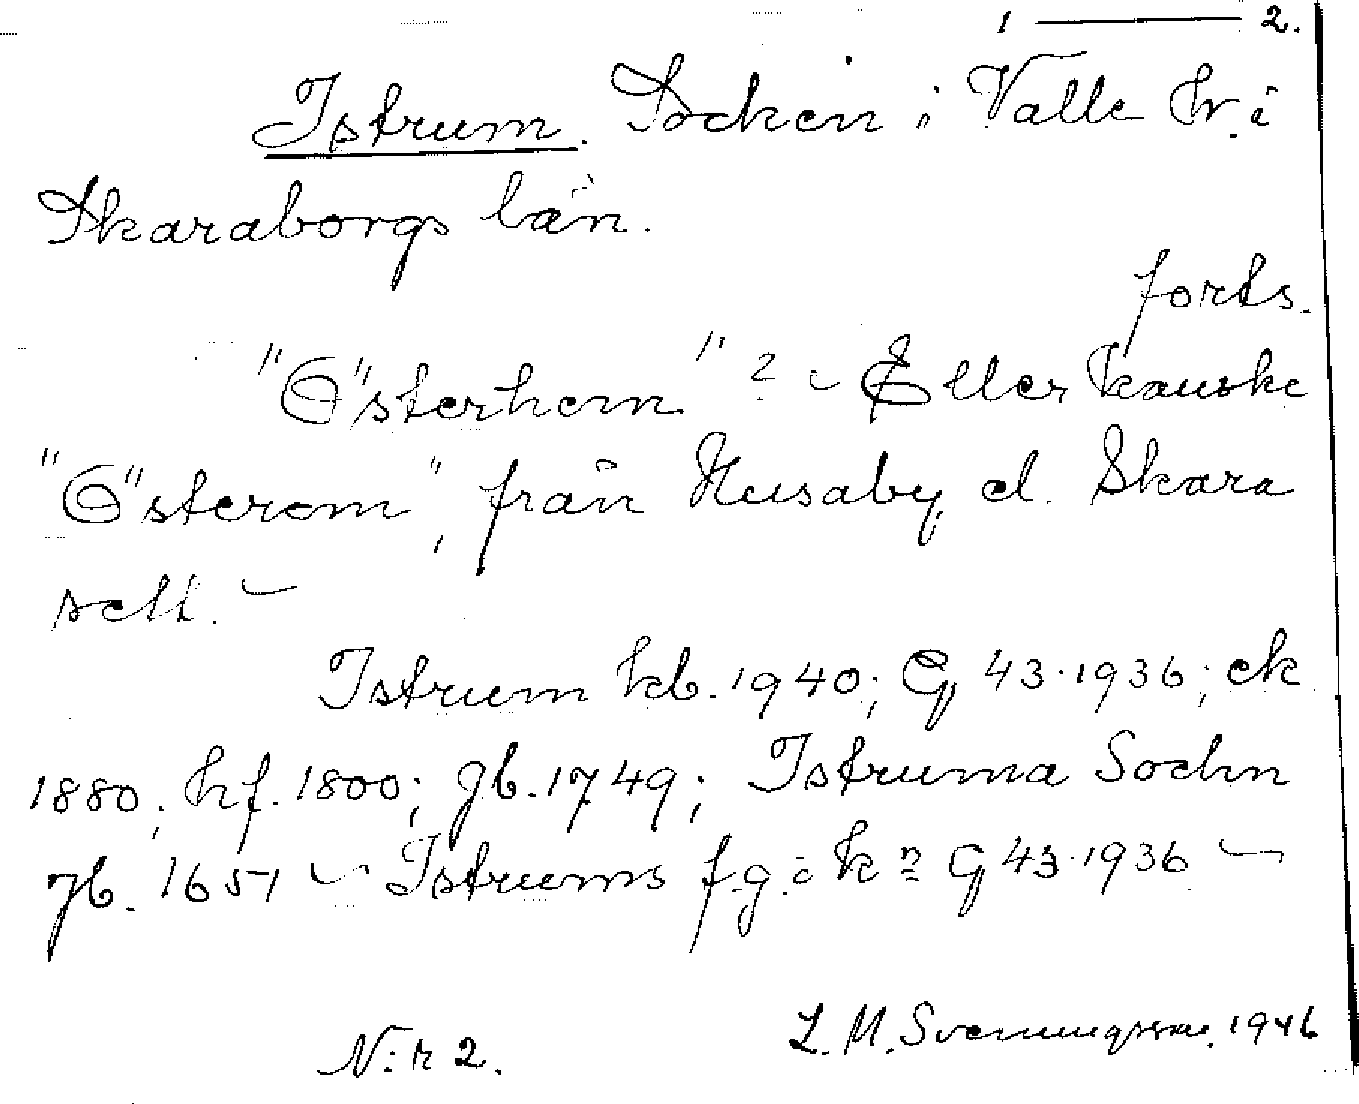 1 — 2.
Istrum. Socken i Valle Hr. i
Skaraborgs län.
forts.
"Österhem" ? ~ Eller kanske
"Österom", från Husaby el. Skara
sett. ~
Istrum kb. 1940; G 43·1936; ek
1880; hf. 1800; jb. 1749; Istruma Sochn
jb. 1651 ~ Istrums f.g:a kn= G 43·1936 ~
N:r 2.
L. M. Svenungsson. 1946